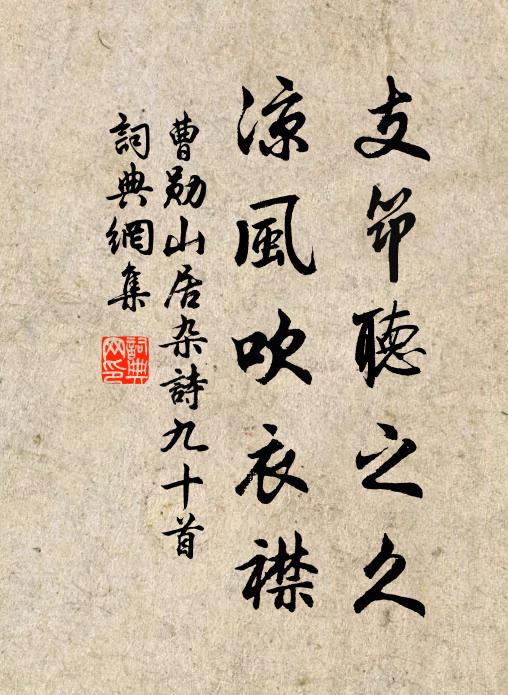 支筇聽之久
涼風吹衣襟
曹勛山居杂詩九十首
詞典網集
詞典网印